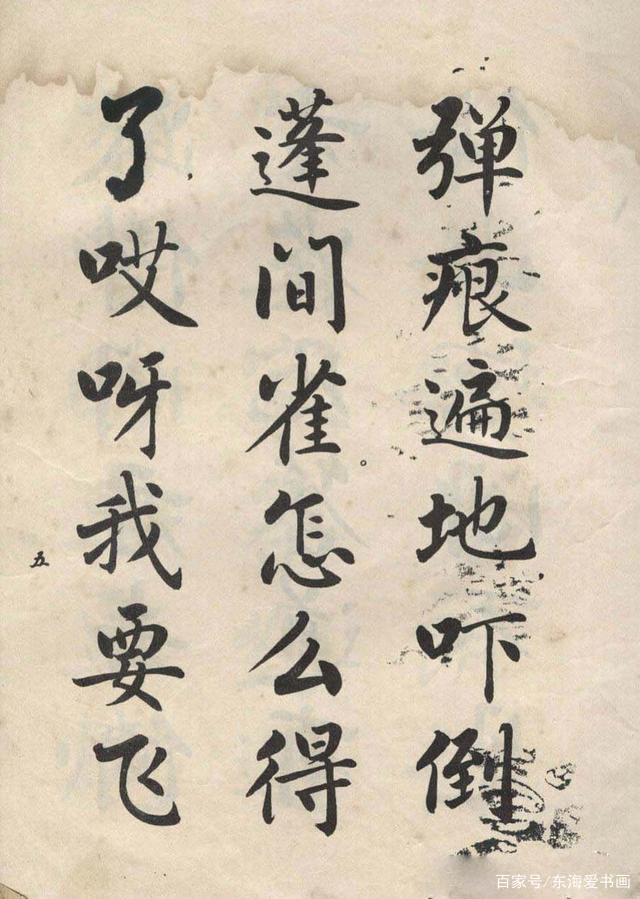 弹痕遍地吓倒
蓬间雀怎么得
了哎呀我要飞
五
百家号/东海爱书画